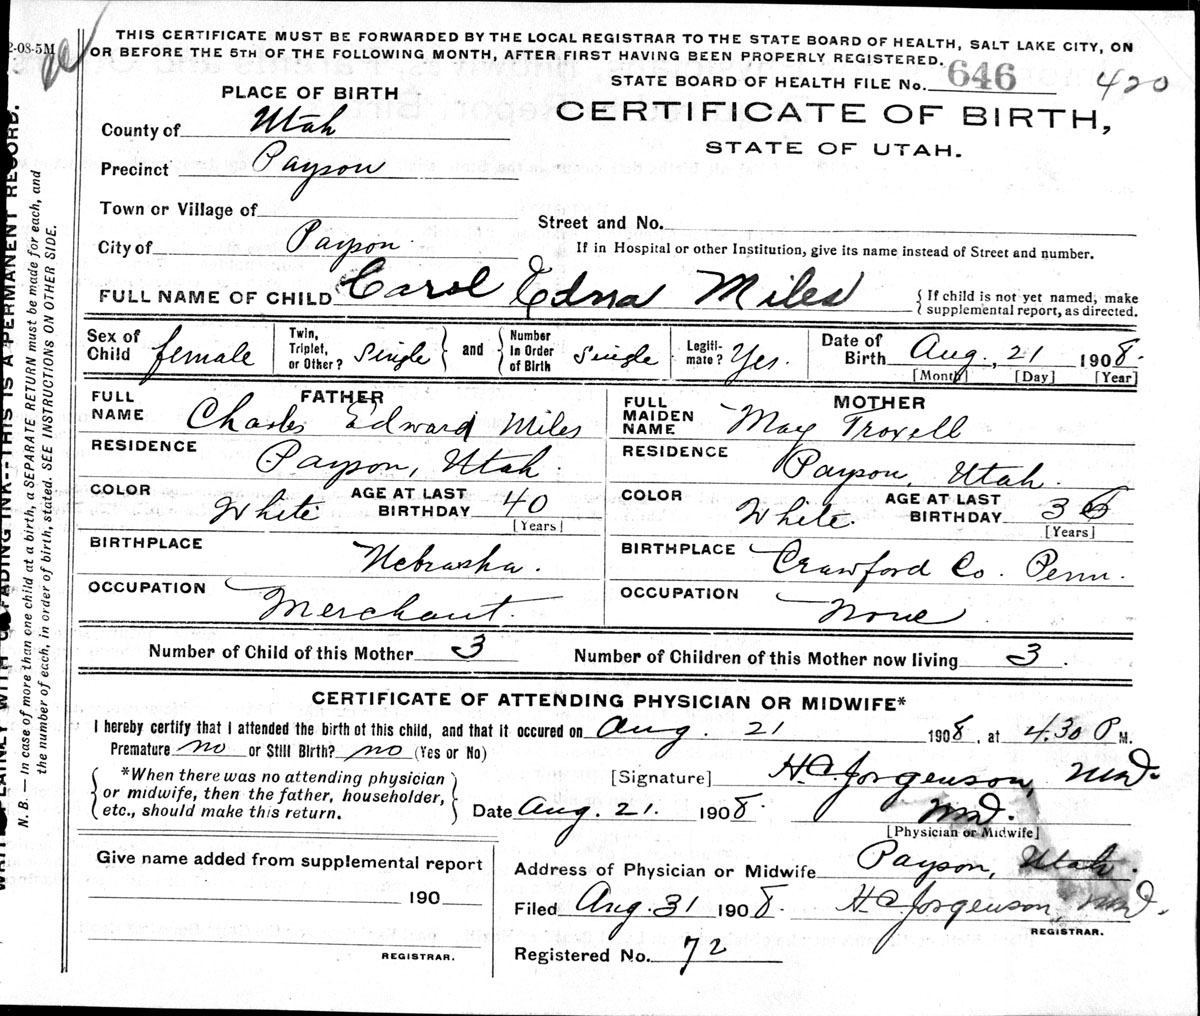 2-08-5M
THIS CERTIFICATE MUST BE FORWARDED BY THE LOCAL REGISTRAR TO THE STATE BOARD OF HEALTH, SALT LAKE CITY, ON
OR BEFORE THE 5TH OF THE FOLLOWING MONTH, AFTER FIRST HAVING BEEN PROPERLY REGISTERED.
STATE BOARD OF HEALTH FILE No. 646 420
PLACE OF BIRTH
CERTIFICATE OF BIRTH,
STATE OF UTAH.
County of Utah
Precinct Payson
Town or Village of
Street and No.
City of Payson
If in Hospital or other Institution, give its name instead of Street and number.
FULL NAME OF CHILD Carol Edna Miles { If child is not yet named, make
supplemental report, as directed.
Sex of Child female
Twin, Triplet, or Other? Single } and { Number in Order of Birth Single
Legiti-mate? Yes.
Date of Birth Aug., 21 1908.
[Month] [Day] [Year]
FATHER
FULL NAME Charles Edward Miles
RESIDENCE Payson, Utah.
COLOR White AGE AT LAST BIRTHDAY 40
[Years]
BIRTHPLACE Nebraska.
OCCUPATION Merchant.
MOTHER
FULL MAIDEN NAME May Troxell
RESIDENCE Payson, Utah.
COLOR White. AGE AT LAST BIRTHDAY
[Years]
BIRTHPLACE Crawford Co. Penn.
OCCUPATION None
Number of Child of this Mother 3
Number of Children of this Mother now living 3.
CERTIFICATE OF ATTENDING PHYSICIAN OR MIDWIFE*
I hereby certify that I attended the birth of this child, and that it occured on Aug. 21 1908, at 4.30 P M.
Premature no or Still Birth? no (Yes or No)
{ *When there was no attending physician
or midwife, then the father, householder,
etc., should make this return. }
[Signature] H C Jorgenson, MD.
Date Aug. 21. 1908. MD.
[Physician or Midwife]
Give name added from supplemental report
190
REGISTRAR.
Address of Physician or Midwife Payson, Utah.
Filed Aug. 31 1908. H C Jorgenson, MD.
REGISTRAR.
Registered No. 72
FADING INK--THIS IS A PERMANENT RECORD.
N. B. — In case of more than one child at a birth, a SEPARATE RETURN must be made for each, and
the number of each, in order of birth, stated. SEE INSTRUCTIONS ON OTHER SIDE.